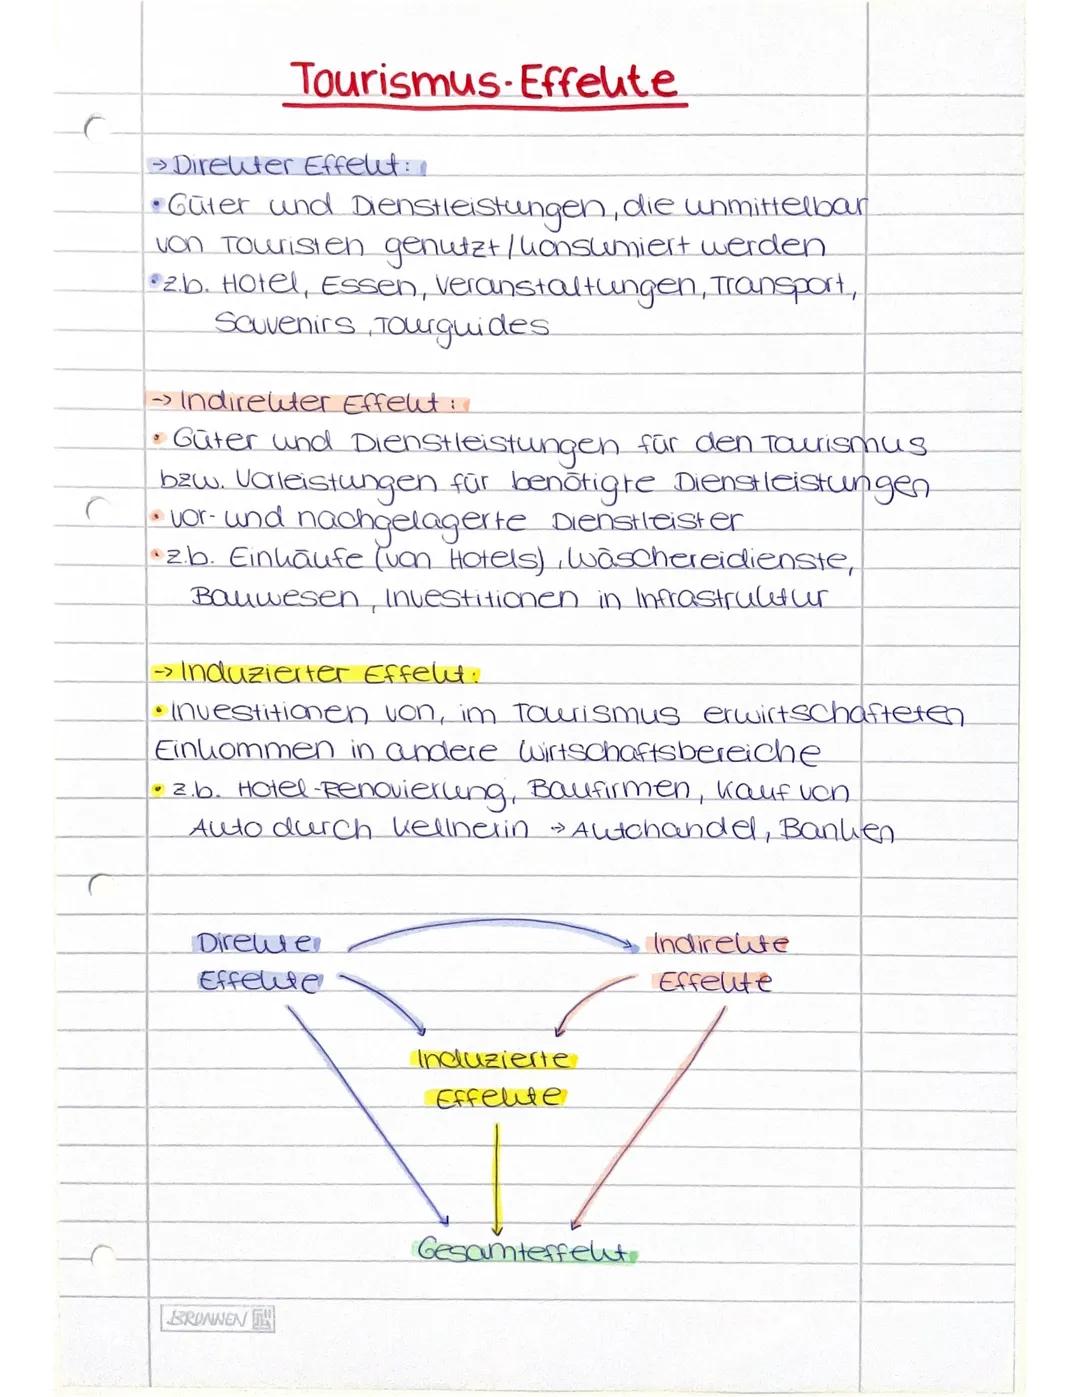 Tourismus-Effekte
→ Direkter Effekt:
• Güter und Dienstleistungen, die unmittelbar
von Touristen genutzt/konsumiert werden
• z.b. Hotel, Essen, Veranstaltungen, Transport,
Souvenirs, Tourguides
→ Indirekter Effekt:
• Güter und Dienstleistungen für den Tourismus
bzw. Vorleistungen für benötigte Dienstleistungen
• vor- und nachgelagerte Dienstleister
• z.b. Einkäufe (von Hotels), Wäschereidienste,
Bauwesen, Investitionen in Infrastruktur
→ Induzierter Effekt:
• Investitionen von, im Tourismus erwirtschafteten
Einkommen in andere Wirtschaftsbereiche
• z.b. Hotel-Renovierung, Baufirmen, Kauf von
Auto durch Kellnerin → Autohandel, Banken
Direkte Indirekte
Effekte Effekte
Induzierte
Effekte
Gesamteffekt
BRUNNEN